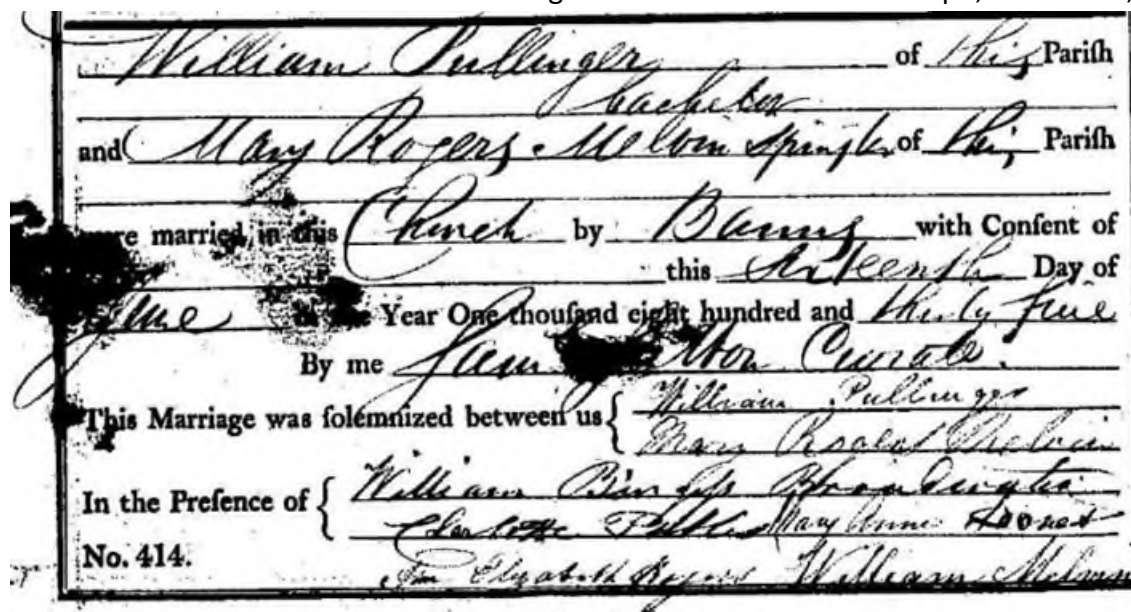 William Pullinger of this Pariſh
bachelor
and Mary Rogers Melvin Spinster of this Pariſh
were married in this Church by Banns with Conſent of
this Sixteenth Day of
June in the Year One thouſand eight hundred and thirty five
By me Curate.
This Marriage was ſolemnized between us William Pullinger
Mary Rogers Melvin
In the Preſence of William
Charlotte Mary Anne
No. 414. Elizabeth Rogers William Melvin